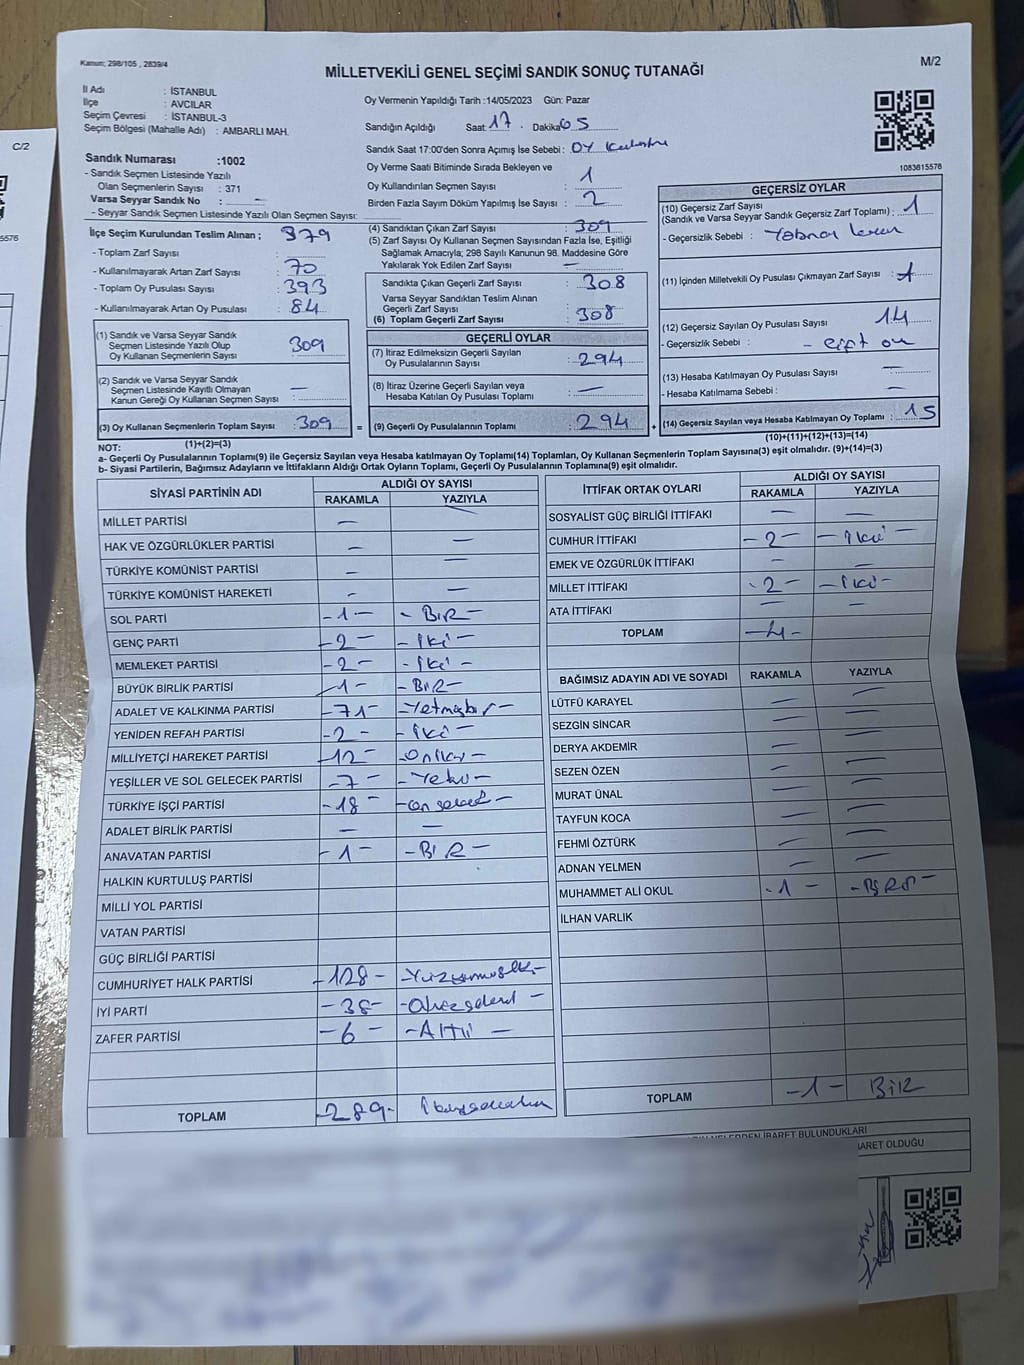 Kanun; 298/105 , 2839/4
MİLLETVEKİLİ GENEL SEÇİMİ SANDIK SONUÇ TUTANAĞI
M/2
İl Adı : İSTANBUL
İlçe : AVCILAR
Seçim Çevresi : İSTANBUL-3
Seçim Bölgesi (Mahalle Adı) : AMBARLI MAH.
Oy Vermenin Yapıldığı Tarih :14/05/2023 Gün: Pazar
Sandığın Açıldığı Saat: 17 . Dakika 05
Sandık Saat 17:00'den Sonra Açımış İse Sebebi: OY
Sandık Numarası :1002
- Sandık Seçmen Listesinde Yazılı
Olan Seçmenlerin Sayısı : 371
Varsa Seyyar Sandık No : —
- Seyyar Sandık Seçmen Listesinde Yazılı Olan Seçmen Sayısı:
Oy Verme Saati Bitiminde Sırada Bekleyen ve
Oy Kullandırılan Seçmen Sayısı : 1
Birden Fazla Sayım Döküm Yapılmış İse Sayısı : 2
1083615576
C/2
5576
İlçe Seçim Kurulundan Teslim Alınan ; 379
- Toplam Zarf Sayısı :
- Kullanılmayarak Artan Zarf Sayısı : 70
- Toplam Oy Pusulası Sayısı : 393
- Kullanılmayarak Artan Oy Pusulası : 84
(1) Sandık ve Varsa Seyyar Sandık
Seçmen Listesinde Yazılı Olup
Oy Kullanan Seçmenlerin Sayısı : 309
(2) Sandık ve Varsa Seyyar Sandık
Seçmen Listesinde Kayıtlı Olmayan
Kanun Gereği Oy Kullanan Seçmen Sayısı : —
(3) Oy Kullanan Seçmenlerin Toplam Sayısı : 309
(1)+(2)=(3)
(4) Sandıktan Çıkan Zarf Sayısı : 309
(5) Zarf Sayısı Oy Kullanan Seçmen Sayısından Fazla İse, Eşitliği
Sağlamak Amacıyla; 298 Sayılı Kanunun 98. Maddesine Göre
Yakılarak Yok Edilen Zarf Sayısı : —
Sandıkta Çıkan Geçerli Zarf Sayısı : 308
Varsa Seyyar Sandıktan Teslim Alınan
Geçerli Zarf Sayısı :
(6) Toplam Geçerli Zarf Sayısı : 308
GEÇERLİ OYLAR
(7) İtiraz Edilmeksizin Geçerli Sayılan
Oy Pusulalarının Sayısı : 294
(8) İtiraz Üzerine Geçerli Sayılan veya
Hesaba Katılan Oy Pusulası Toplamı : —
= (9) Geçerli Oy Pusulalarının Toplamı : 294 +
GEÇERSİZ OYLAR
(10) Geçersiz Zarf Sayısı
(Sandık ve Varsa Seyyar Sandık Geçersiz Zarf Toplamı) : 1
- Geçersizlik Sebebi :
(11) İçinden Milletvekili Oy Pusulası Çıkmayan Zarf Sayısı : 1
(12) Geçersiz Sayılan Oy Pusulası Sayısı : 14
- Geçersizlik Sebebi : - çift oy
(13) Hesaba Katılmayan Oy Pusulası Sayısı : —
- Hesaba Katılmama Sebebi : —
(14) Geçersiz Sayılan veya Hesaba Katılmayan Oy Toplamı : 15
(10)+(11)+(12)+(13)=(14)
NOT:
a- Geçerli Oy Pusulalarının Toplamı(9) ile Geçersiz Sayılan veya Hesaba katılmayan Oy Toplamı(14) Toplamları, Oy Kullanan Seçmenlerin Toplam Sayısına(3) eşit olmalıdır. (9)+(14)=(3)
b- Siyasi Partilerin, Bağımsız Adayların ve İttifakların Aldığı Ortak Oyların Toplamı, Geçerli Oy Pusulalarının Toplamına(9) eşit olmalıdır.
SİYASİ PARTİNİN ADI
ALDIĞI OY SAYISI
RAKAMLA YAZIYLA
MİLLET PARTİSİ — —
HAK VE ÖZGÜRLÜKLER PARTİSİ — —
TÜRKİYE KOMÜNİST PARTİSİ — —
TÜRKİYE KOMÜNİST HAREKETİ — —
SOL PARTİ -1- - BİR -
GENÇ PARTİ -2- - İki -
MEMLEKET PARTİSİ -2- - İki -
BÜYÜK BİRLİK PARTİSİ -1- - BİR -
ADALET VE KALKINMA PARTİSİ -71- - Yetmişbir -
YENİDEN REFAH PARTİSİ -2- - İki -
MİLLİYETÇİ HAREKET PARTİSİ -12- - Oniki -
YEŞİLLER VE SOL GELECEK PARTİSİ -7- - Yedi -
TÜRKİYE İŞÇİ PARTİSİ -18- - on sekiz -
ADALET BİRLİK PARTİSİ — —
ANAVATAN PARTİSİ -1- - BİR -
HALKIN KURTULUŞ PARTİSİ
MİLLİ YOL PARTİSİ
VATAN PARTİSİ
GÜÇ BİRLİĞİ PARTİSİ
CUMHURİYET HALK PARTİSİ -128- - Yüzyirmisekiz -
İYİ PARTİ -38- - Otuzsekiz -
ZAFER PARTİSİ -6- - Altı -
TOPLAM -289-
İTTİFAK ORTAK OYLARI
ALDIĞI OY SAYISI
RAKAMLA YAZIYLA
SOSYALİST GÜÇ BİRLİĞİ İTTİFAKI — —
CUMHUR İTTİFAKI -2- - İki -
EMEK VE ÖZGÜRLÜK İTTİFAKI — —
MİLLET İTTİFAKI -2- - İki -
ATA İTTİFAKI — —
TOPLAM -4-
BAĞIMSIZ ADAYIN ADI VE SOYADI RAKAMLA YAZIYLA
LÜTFÜ KARAYEL — —
SEZGİN SİNCAR — —
DERYA AKDEMİR — —
SEZEN ÖZEN — —
MURAT ÜNAL — —
TAYFUN KOCA — —
FEHMİ ÖZTÜRK — —
ADNAN YELMEN — —
MUHAMMET ALİ OKUL -1- - BİR -
İLHAN VARLIK
TOPLAM -1- BİR
İBARET BULUNDUKLARI
BARET OLDUĞU